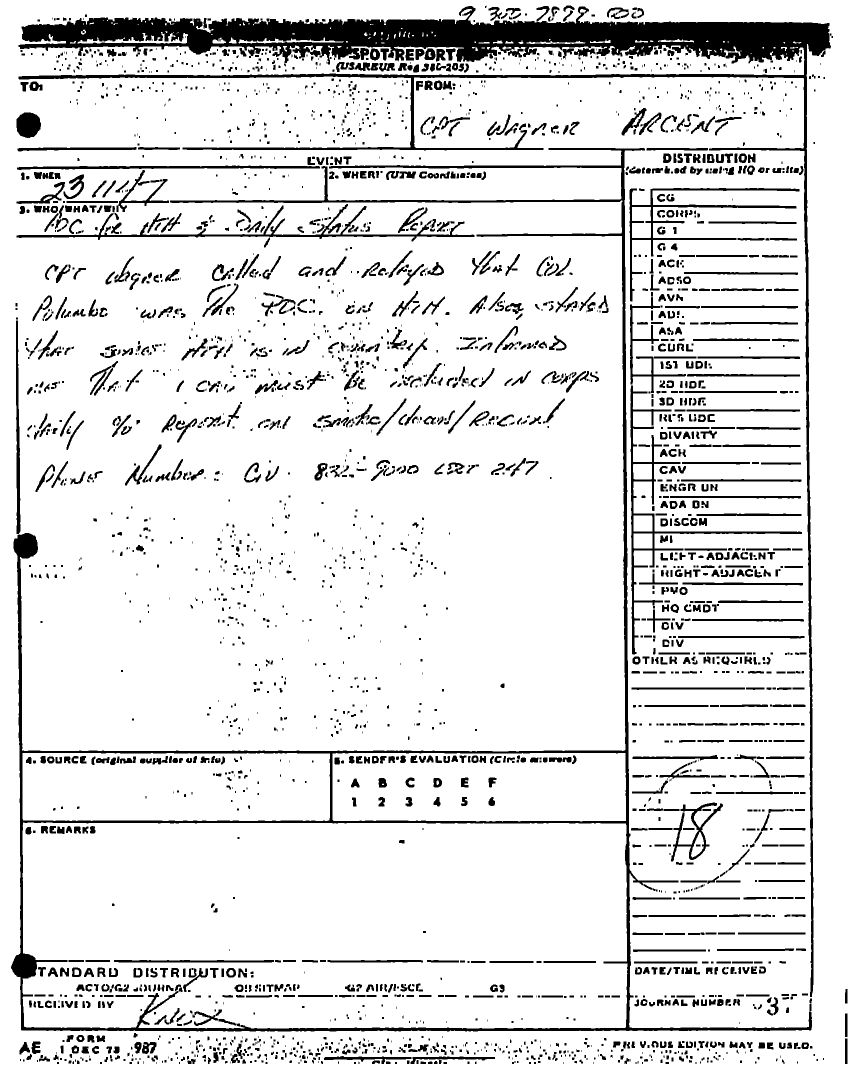 SPOT REPORT
(USAREUR Reg 380-205)
TO:
FROM:
CPT Wagner ARCENT
EVENT
1. WHEN
23 1147
2. WHERE (UTM Coordinates)
3. WHO/WHAT/WHY
POC for HTH & Daily Status Report
CPT Wagner called and relayed that COL.
Palumbo was the P.O.C. on HTH. Also, stated
that senior HTH is in country. Informed
me that must be included in corps
daily % Report on smoke/decon/Recon
Phone Number: CIV 247
4. SOURCE (original supplier of info)
5. SENDER'S EVALUATION (Circle answers)
A B C D E F
1 2 3 4 5 6
6. REMARKS
STANDARD DISTRIBUTION:
ACTO/G2 JOURNAL G2 AIR/FSCE G3
RECEIVED BY
Knox
AE FORM 1 DEC 78 987
DISTRIBUTION
(determined by using HQ or units)
CG
CORPS
G 1
G 4
ACE
ADSO
AVN
ADE
ASA
CURL
1ST BDE
2D BDE
3D BDE
RES BDE
DIVARTY
ACR
CAV
ENGR BN
ADA BN
DISCOM
MI
LEFT-ADJACENT
RIGHT-ADJACENT
PMO
HQ CMDT
DIV
DIV
OTHER AS REQUIRED
18
DATE/TIME RECEIVED
JOURNAL NUMBER 37
PREVIOUS EDITION MAY BE USED.